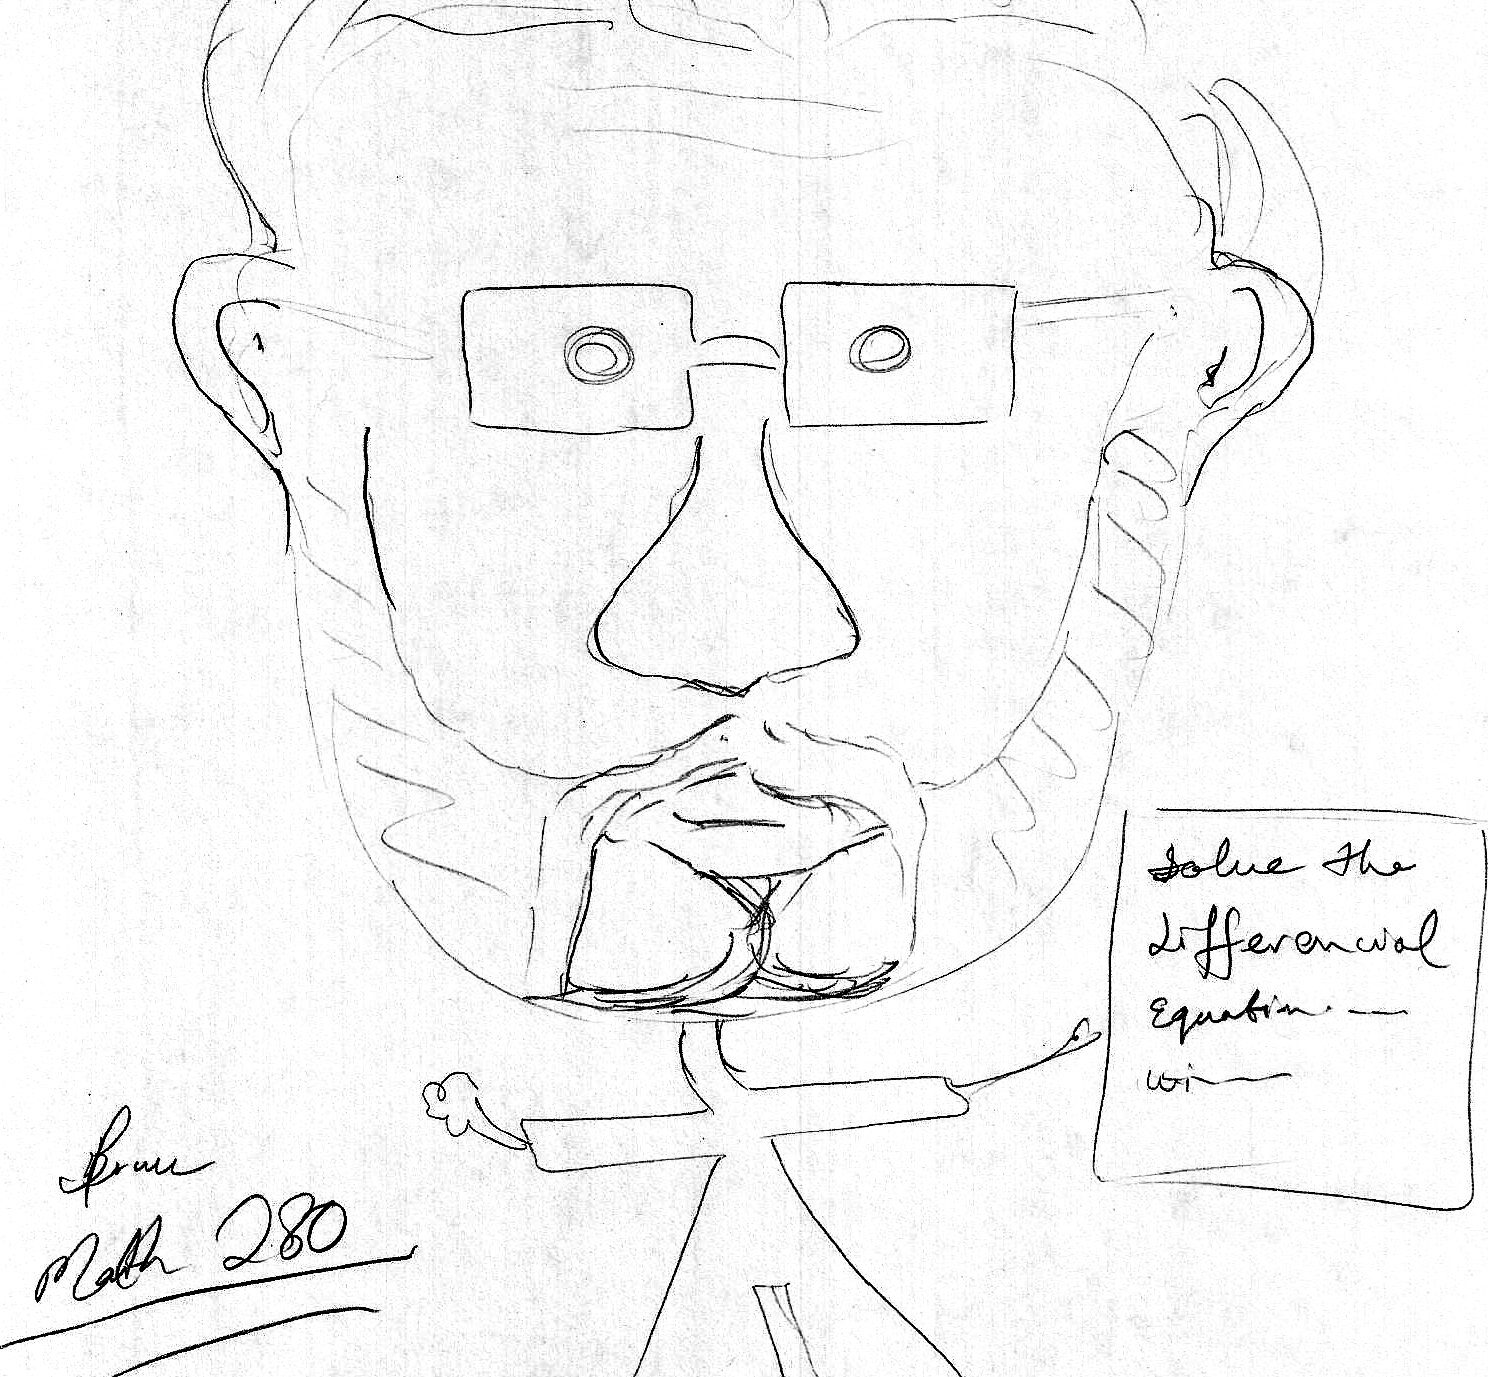 Solve the
differencial
Equation. —
wi—
Math 280